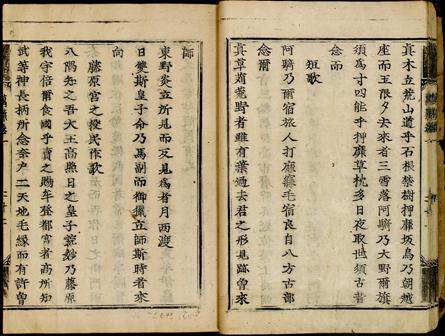 真木立荒山道乎石根禁樹押靡坂鳥乃朝越
座而玉限夕去來者三雪落阿騎乃大野爾旗
須爲寸四能乎押靡草枕多日夜取世須古昔
念而
短歌
阿騎乃爾宿旅人打靡寐毛宿良自八方古部
念爾
真草苅荒野者雖有葉過去君之形見跡曽來
師
東野炎立所見而反見爲者月西渡
日雙斯皇子命乃馬副而御獵立師斯時者來
向
藤原宮之役民作歌
八隅知之吾大王高照日之皇子荒妙乃藤原
我宇倍爾食國乎賣之賜牟登都宮者高所知
武等神長柄所念奈戸二天地毛縁而有許曽